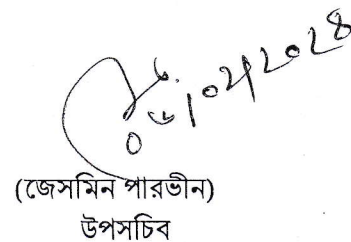 ০৬/০২/২০২৪
(জেসমিন পারভীন)
উপসচিব